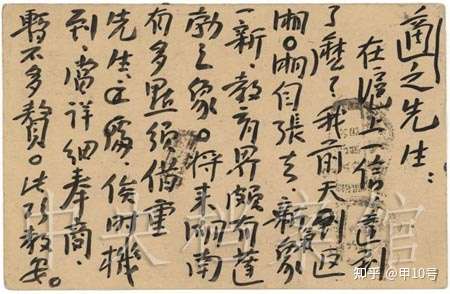 適之先生：
在滬上一信達到
了麽？我前天返
湘。湘自張去，氣象
一新，教育界頗有蓬
勃之象。將來湖南
有多點須借重
先生之處，俟時機
到，當詳細奉商，
暫不多贅。此頌教安。
中央檔案館
知乎 @甲10号